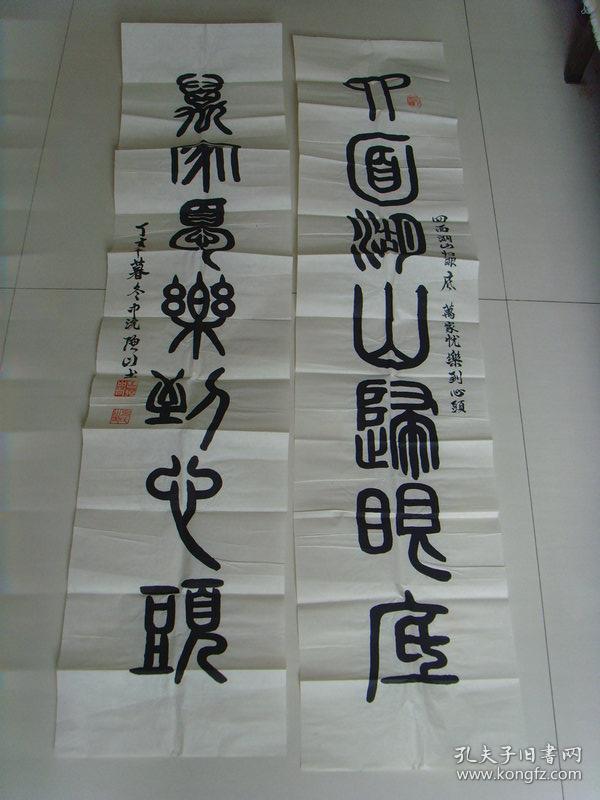 四面湖山歸眼底
四面湖山歸眼底 萬家忧樂到心頭
萬家憂樂到心頭
丁亥年暮冬中浣
孔夫子旧書网
www.kongfz.com